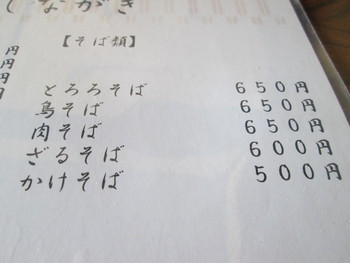 しながき
【そば類】
とろろそば 650円
鳥そば 650円
肉そば 650円
ざるそば 600円
かけそば 500円
円
円
円
円